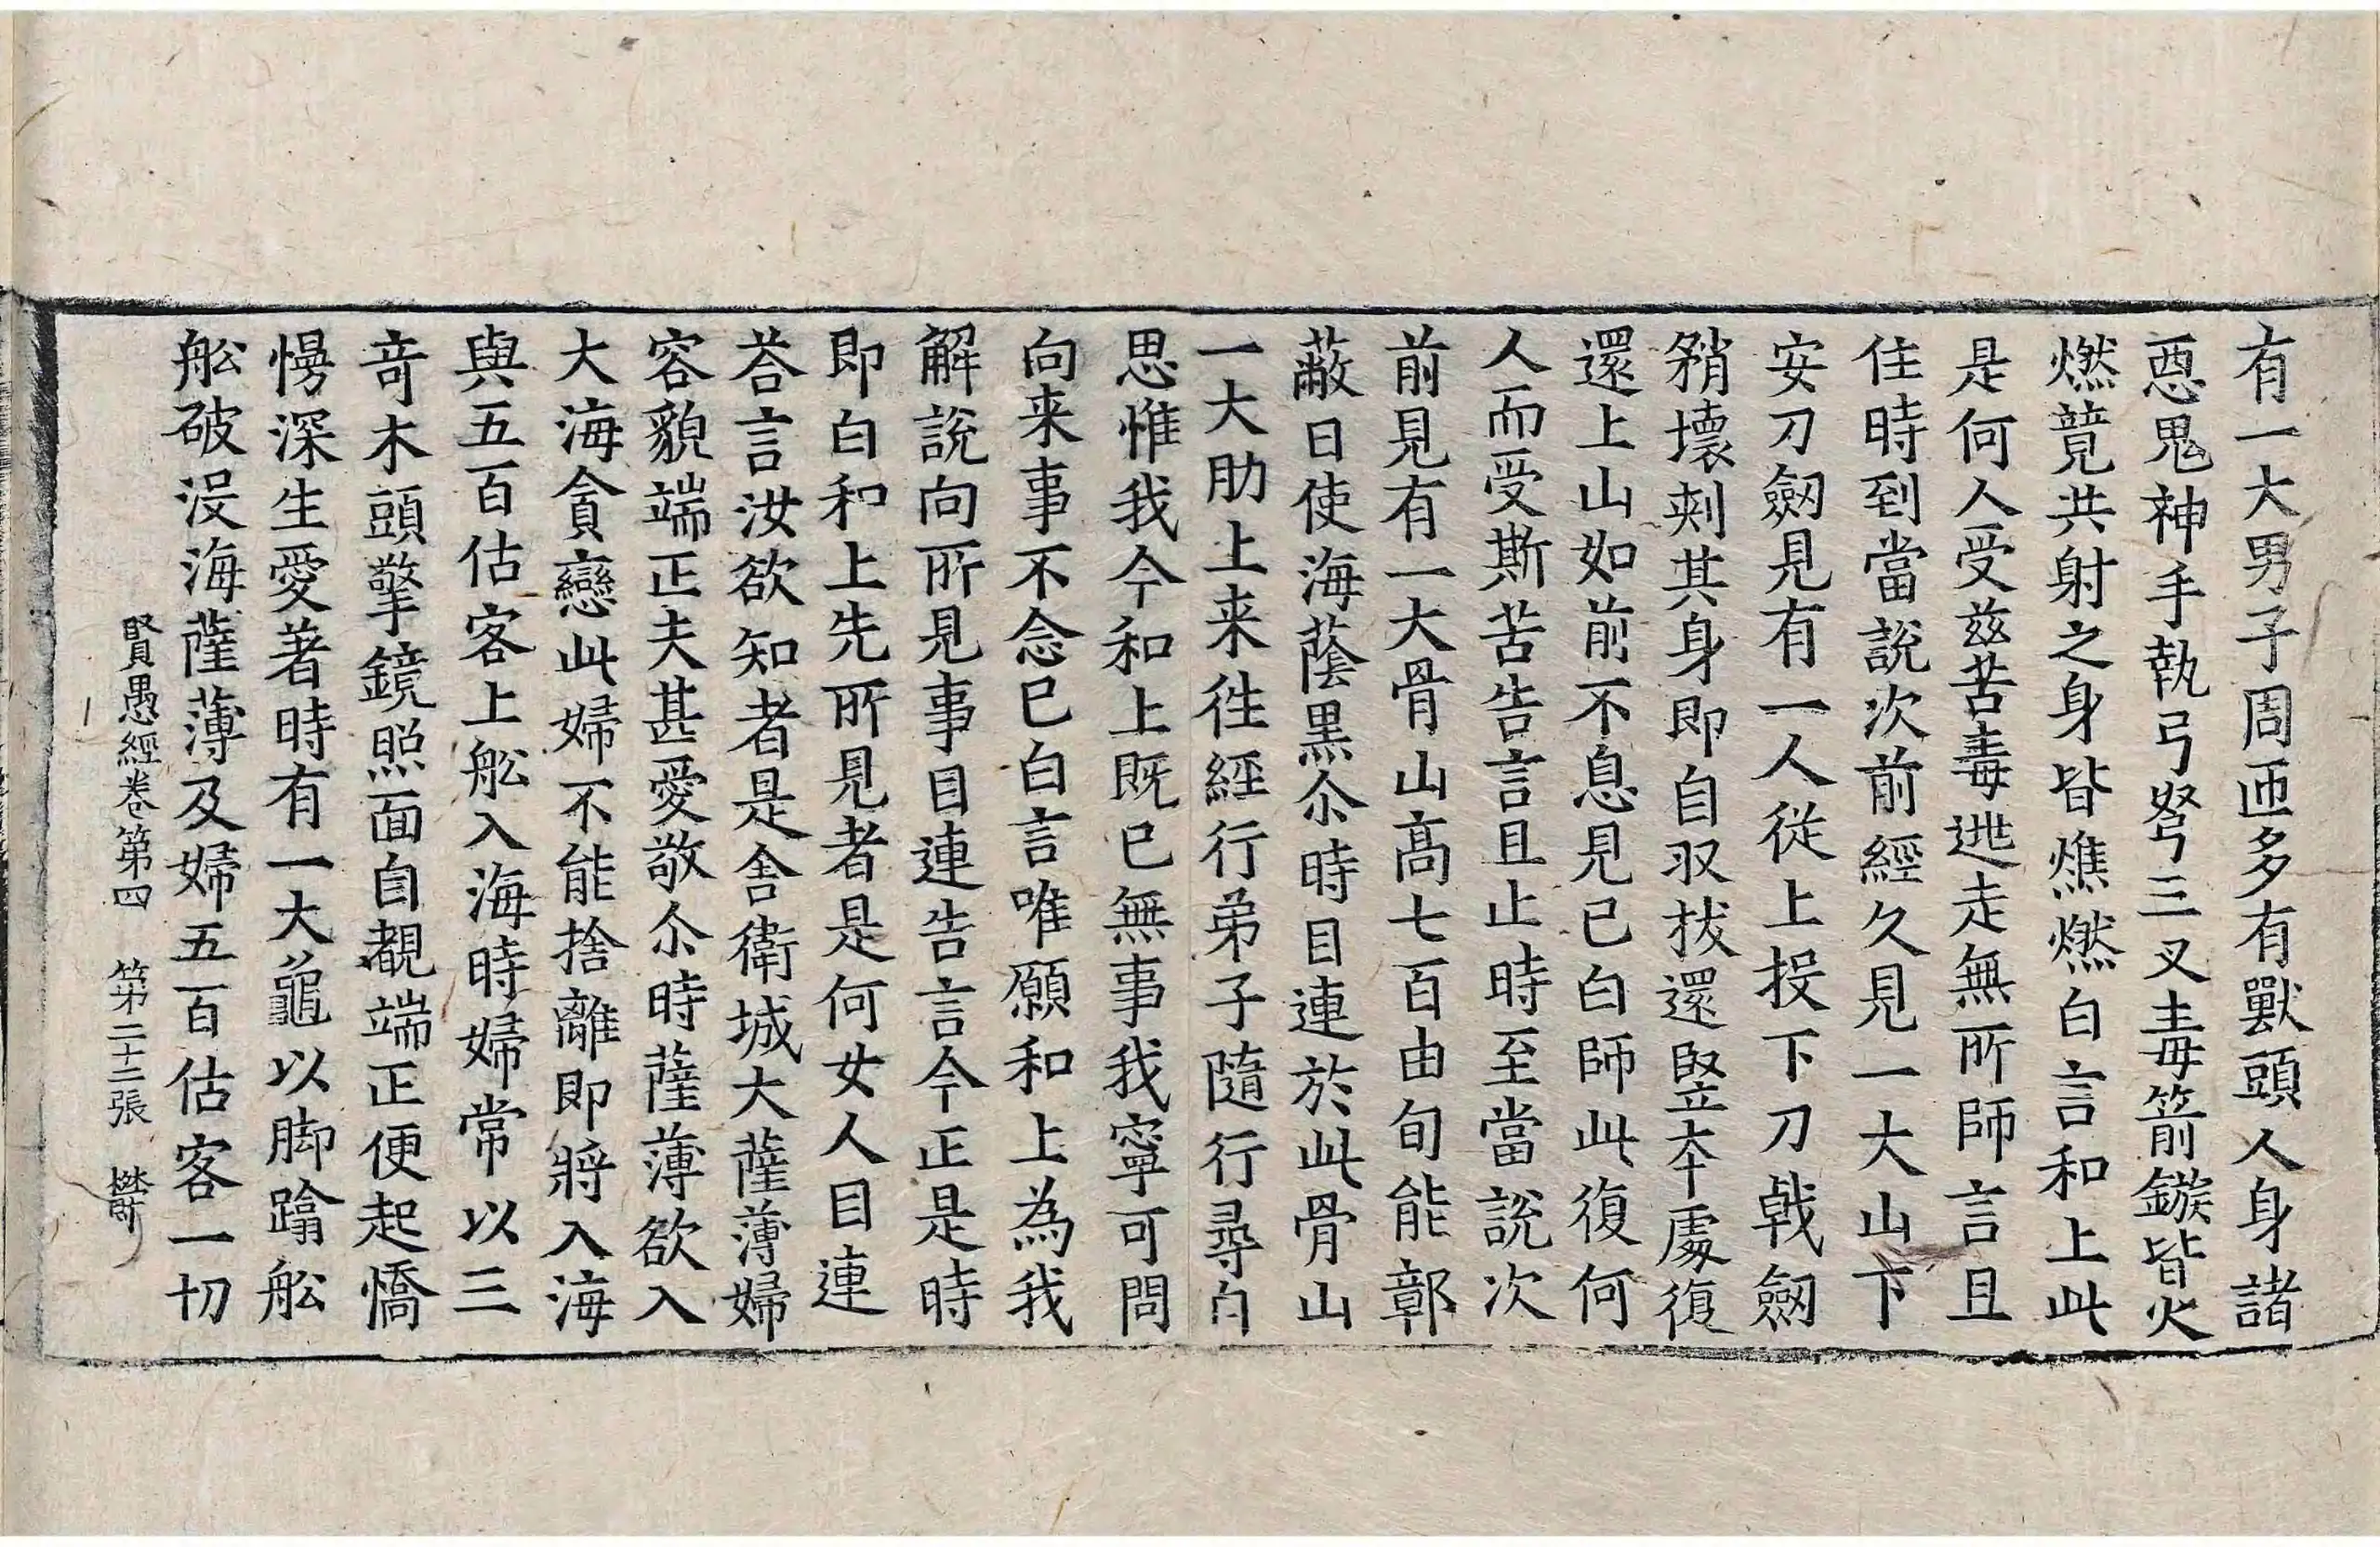 有一大男子周匝多有獸頭人身諸
惡鬼神手執弓弩三叉毒箭鏃皆火
燃競共射之身皆燋燃白言和上此
是何人受茲苦毒逃走無所師言且
住時到當說次前經久見一大山下
安刀劒見有一人從上投下刀戟劒
矟壞刺其身即自収拔還竪本處復
還上山如前不息見已白師此復何
人而受斯苦告言且止時至當說次
前見有一大骨山高七百由旬能鄣
蔽日使海蔭黒尒時目連於此骨山
一大肋上来徃經行弟子隨行尋白
思惟我今和上既已無事我寧可問
向来事不念已白言唯願和上為我
解說向所見事目連告言今正是時
即白和上先所見者是何女人目連
荅言汝欲知者是舍衛城大薩薄婦
容貌端正夫甚愛敬尒時薩薄欲入
大海貪戀此婦不能捨離即將入海
與五百估客上舩入海時婦常以三
竒木頭擎鏡照面自覩端正便起憍
慢深生愛著時有一大龜以脚蹹舩
舩破沒海薩薄及婦五百估客一切
賢愚經卷第四 第二十二張 欝